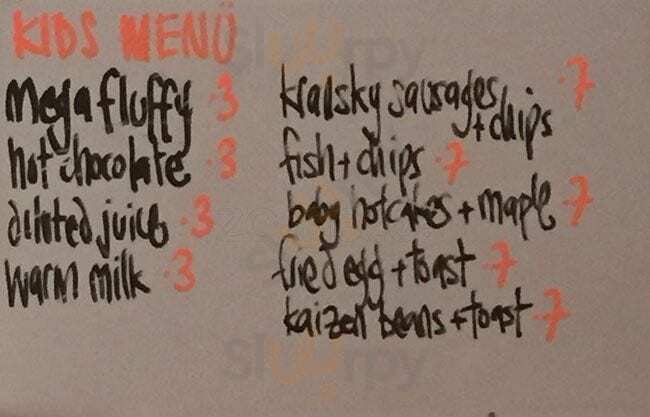 KIDS MENÜ
mega fluffy ·3
hot chocolate ·3
diluted juice ·3
warm milk ·3
kransky sausages + chips ·7
fish + chips ·7
baby hotcakes + maple ·7
fried egg + toast ·7
kaizen beans + toast ·7
Slurrpy
Slurrpy